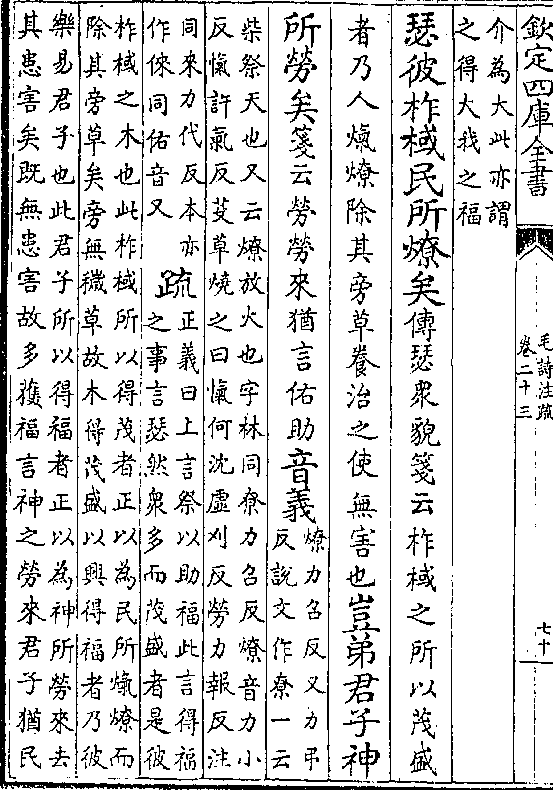 欽定四庫全書
毛詩注疏
卷二十三
七十
介為大此亦謂
之得大我之福
瑟彼柞棫民所燎矣傳瑟衆貌箋云柞棫之所以茂盛
者乃人熂燎除其旁草養治之使無害也豈弟君子神
所勞矣箋云勞勞來猶言佑助音義
燎力召反又力弔
反說文作尞一云
柴祭天也又云燎放火也字林同尞力召反燎音力小
反熂許氣反芟草燒之曰熂何沈虛刈反勞力報反注
同來力代反本亦
作倈同佑音又
疏
正義曰上言祭以助福此言得福
之事言瑟然衆多而茂盛者是彼
柞棫之木也此柞棫所以得茂者正以為民所熂燎而
除其旁草矣旁無穢草故木得茂盛以興得福者乃彼
樂易君子也此君子所以得福者正以為神所勞來去
其患害矣既無患害故多獲福言神之勞來君子猶民